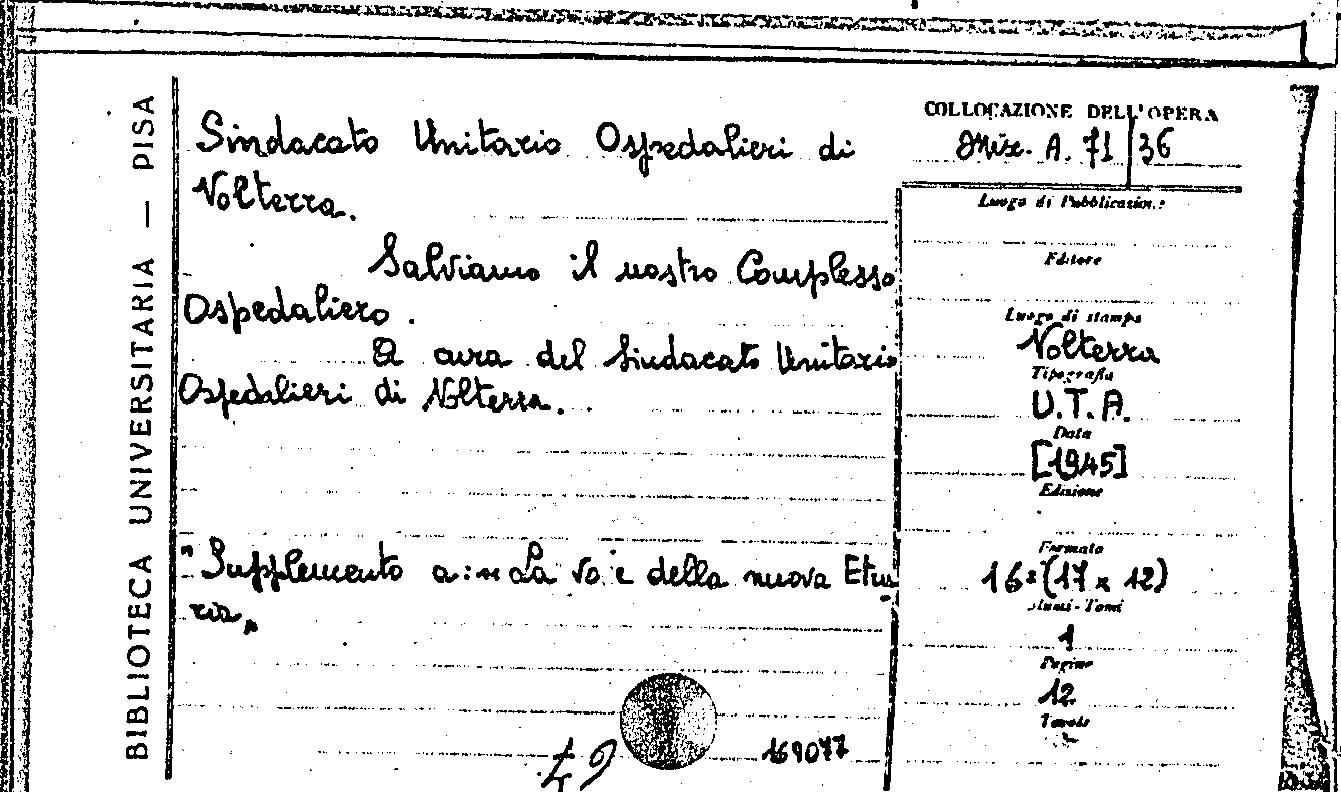 BIBLIOTECA UNIVERSITARIA — PISA
Sindacato Unitario Ospedalieri di
Volterra.
Salviamo il nostro Complesso
Ospedaliero.
A cura del Sindacato Unitario
Ospedalieri di Volterra.
"Supplemento a: "La voce della nuova Etru
ria„
169077
COLLOCAZIONE DELL'OPERA
Misc. A. 71 36
Luogo di Pubblicazione
Editore
Luogo di stampa
Volterra
Tipografia
U.T.A.
Data
[1945]
Edizione
Formato
16° (17 x 12)
Volumi-Tomi
1
Pagine
12
Tavole